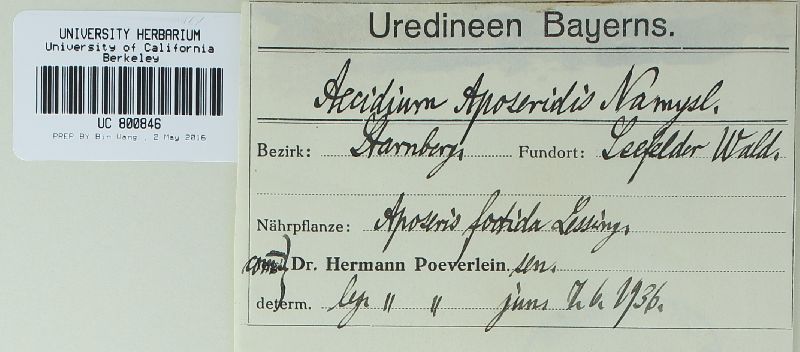 UNIVERSITY HERBARIUM
University of California
Berkeley
UC 800846
PREP. BY Bin Wang , 2 May 2016
Uredineen Bayerns.
Aecidium Aposeridis Namysl.
Bezirk: Starnberg. Fundort: Seefelder Wald.
Nährpflanze: Aposeris foetida Lessing.
com. Dr. Hermann Poeverlein sen.
determ. leg. " " jun. 7. 6. 1936.